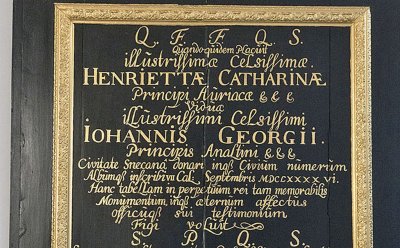 Q. F. F. Q. S.
Quandoquidem Placuit
illustrissimæ Celsissimæ.
HENRIETTÆ CATHARINÆ
Principi Auriacæ & & &
Viduæ
illustrissimi Celsissimi
IOHANNIS GEORGII.
Principis Analtini & & &
Civitate Snecana donari inq3 Civium numerum
Albumq3 inscribi va Cal. Septembris MDCCXXXX VI
Hanc tabellam in perpetuum rei tam memorabilis
Monumentum inq3 æternum affectus
officiq3 sui testimonium
Figi voLuit
S. P. Q. S.